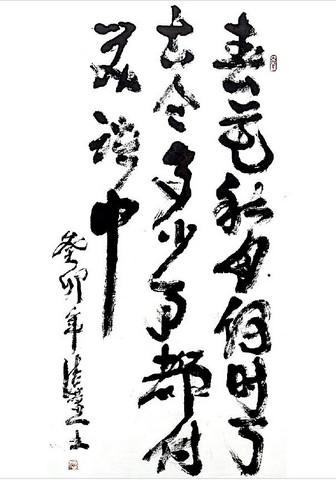 春花秋月何时了
古今多少事都付
笑谈中
癸卯年